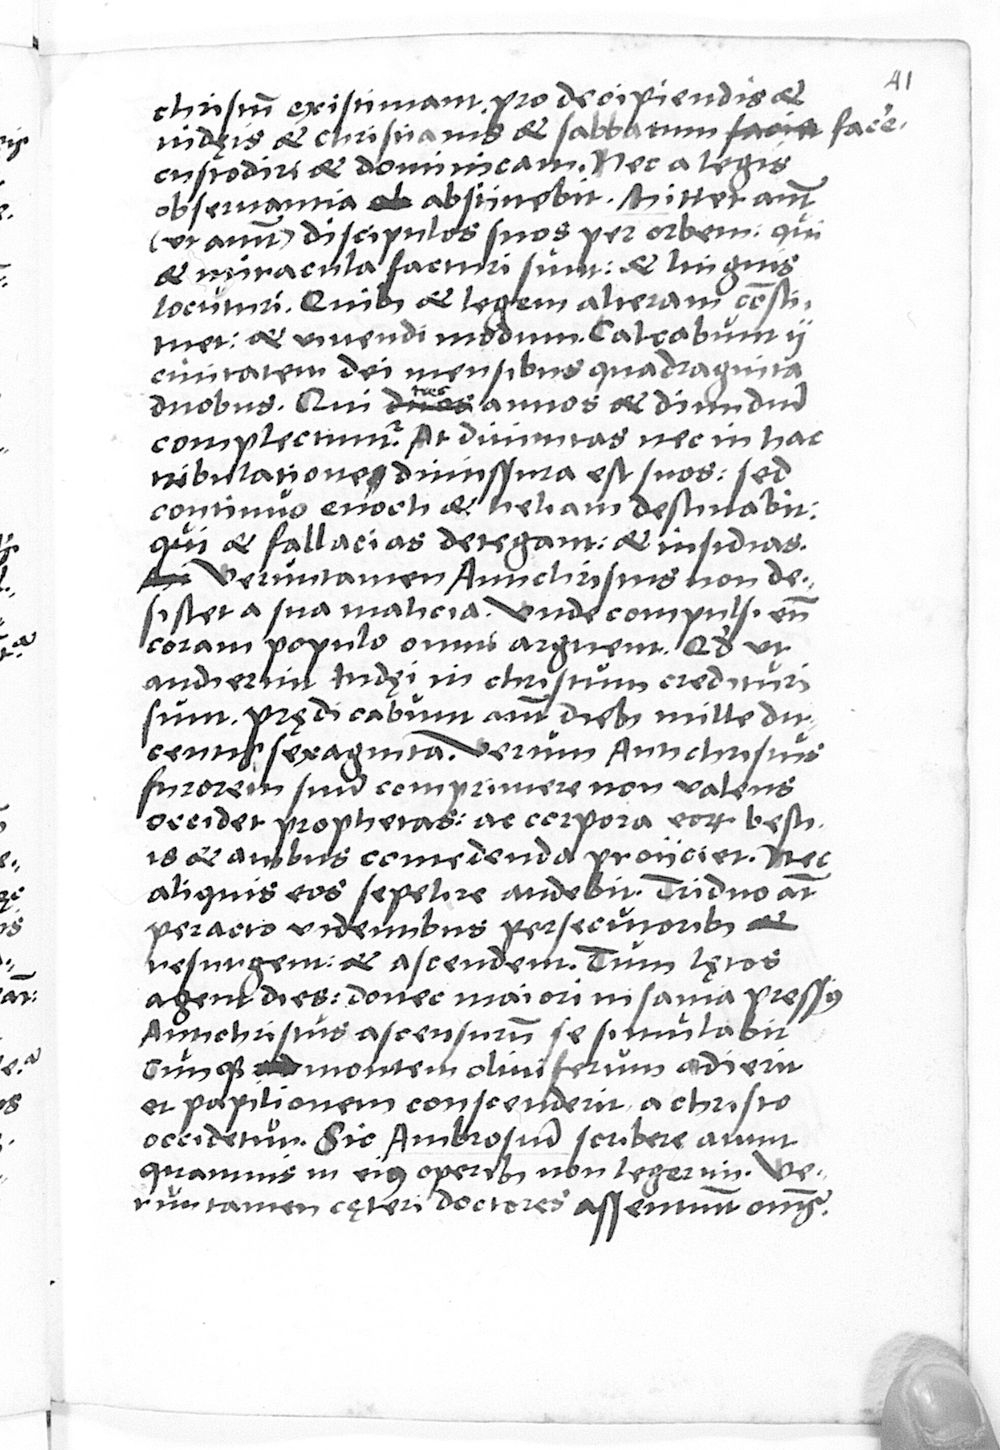 41
christū existimant. pro decipiendis &
iudęis & christianis & sabbatum facie facē.
custodiri & dominicam. Nec a legis
obseruantia ab abstinebit. Mittet aūt
(ut aiunt) discipulos suos per orbem: qui
& miracula facturi sunt: & linguis
locuturi. Quib; & legem alteram cōsti-
tuet: & viuendi modum. Calcabunt ij
ciuitatem dei mensibus quadraginta
duobus. Qui duos tres annos & dimidiū
complectuntr. At diuinitas nec in hac
tribulatione dimissura est suos: sed
continuo enoch & heliam destinabit:
qui & fallacias detegant: & insidias.
Veruntamen Antichristus non de-
sistet a sua malicia. Unde compulsi eū
coram populo omni arguent. Qđ ut
audierint Iudęi in christum credituri
sunt. prędicabunt aūt dieb; mille du-
centis sexaginta. Verum Antichristus
furorem suū comprimere non valens
occidet prophetas: ac corpora eoꝝ besti-
is & auibus comedenda proijciet. Nec
aliquis eos sepelire audebit. Triduo aūt
peracto videntibus persecutorib; &
resurgent: & ascendent. Tum lętos
agent dies: donec maiori insania pressꝰ
Antichristus ascensurū se simulabit
Cunqꝫ ad montem oliuiferum adierit
et papilionem conscenderit, a christo
occidetur. Sic Ambrosiū scribere aiunt
quamuis in eiꝰ operib; non legerim. Ve-
runtamen cęteri doctores assentiunt om̄s.